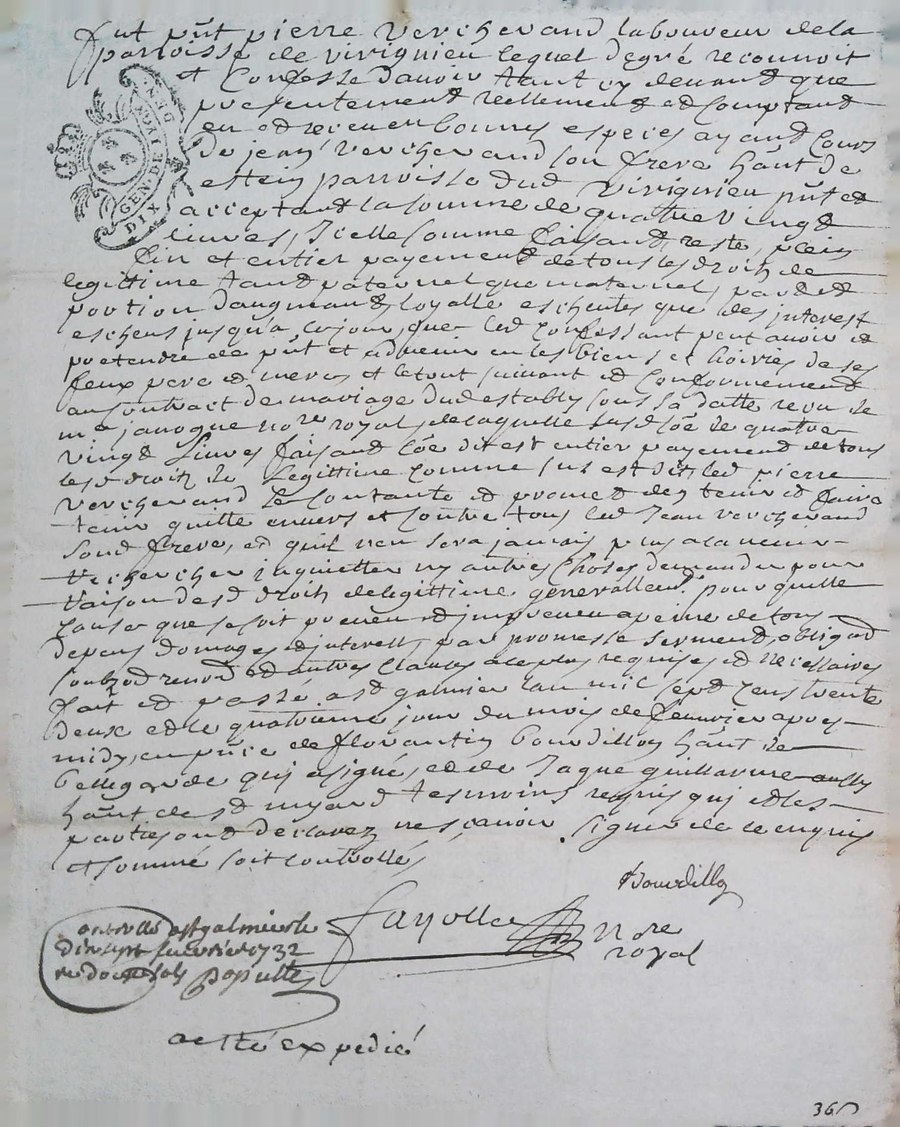 fut pñt pierre verchevand laboureur de la
parroisse de virignieu lequel de gré reconnoit
et Confesse d'avoir tant cy devant que
presentement reellement et Comptand
eu et receu en bonnes especes ayand Cours
de jean verchevand son frere hãnt de
parroisse dud Virignieu pñt et
acceptand la somme de quatre vingt
livres, Icelle somme faisand, reste, plein
fin et entier payement de tous les droits de
legittime tand paternel que maternel, pard et
portion d'augmand, loyalle escheutes que des interest
escheus jusqu'a ce jour, que led Confessant peut avoir et
pretendre de pñt et advenir en les biens et hoirres de ses
feux pere et meres et le tout suivant et Conformement
au Contract de mariage dud estably sous sa datte receu
me janogue nore royal, de laquelle susd sõe de quatre
vingt Livres faisand sõe dit est entier payement de tous
lesd droits de Legittime Comme sus est dit, led pierre
verchevand se Contante et promet d'en tenir et faire
tenir quitte envers et Contre tous led Jean verchevand
sond frere, et quil n'en sera jamais plus a l'avenir
rechercher inquietter ny autres Choses demander pour
raison desd droits de legittime generallemt. pour quelle
Cause que se soit preveu et impreveu a peine de tous
depens domages et interest, par promesse serment, obligãd
soubzõd renond et autres Clauses a ce plus requises et necessaires
fait et passé a st galmier l'an mil sept Cens trente
deux et le quatrieme jour du mois de fevrier apres
midy, en pñce de florantin bourdillon hãnt de
bellegarde qui a signé, et de Jaque guillarme aussy
hãnt de st tesmoins requis qui et les
parties ont declarez ne sçavoir signer de ce enquis
et sommé soit controllé,
Bourdillon
Fayolle
Nore
royal
Controllé a st galmier le
dix sept fevrier 1732
reçu douze sols Populle
a esté expedié
GEN. DE
DIX
DEN
36